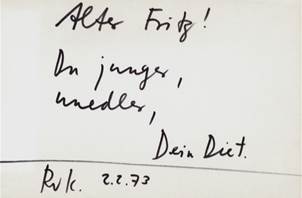 Alter Fritz!
Du junger,
unedler,
Dein Diet.
Rvk. 2.2.73